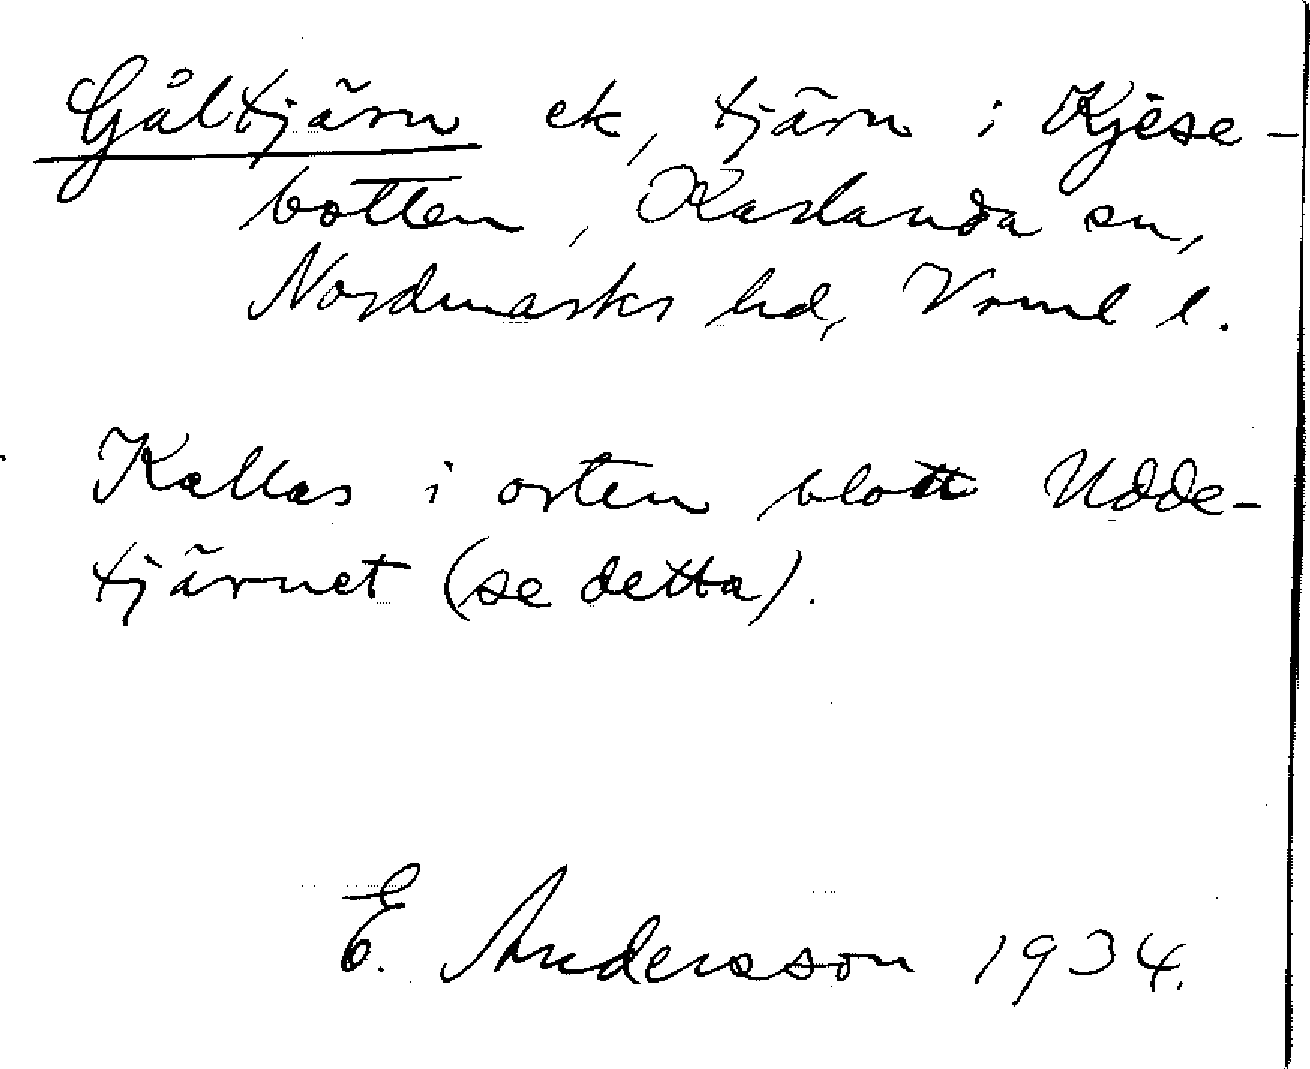 Gåltjärn ek, tjärn i Kjese-
botten, Karlanda sn,
Nordmarks hd, Vrml l.
Kallas i orten blott Udde-
tjärnet (se detta).
E. Andersson 1934.